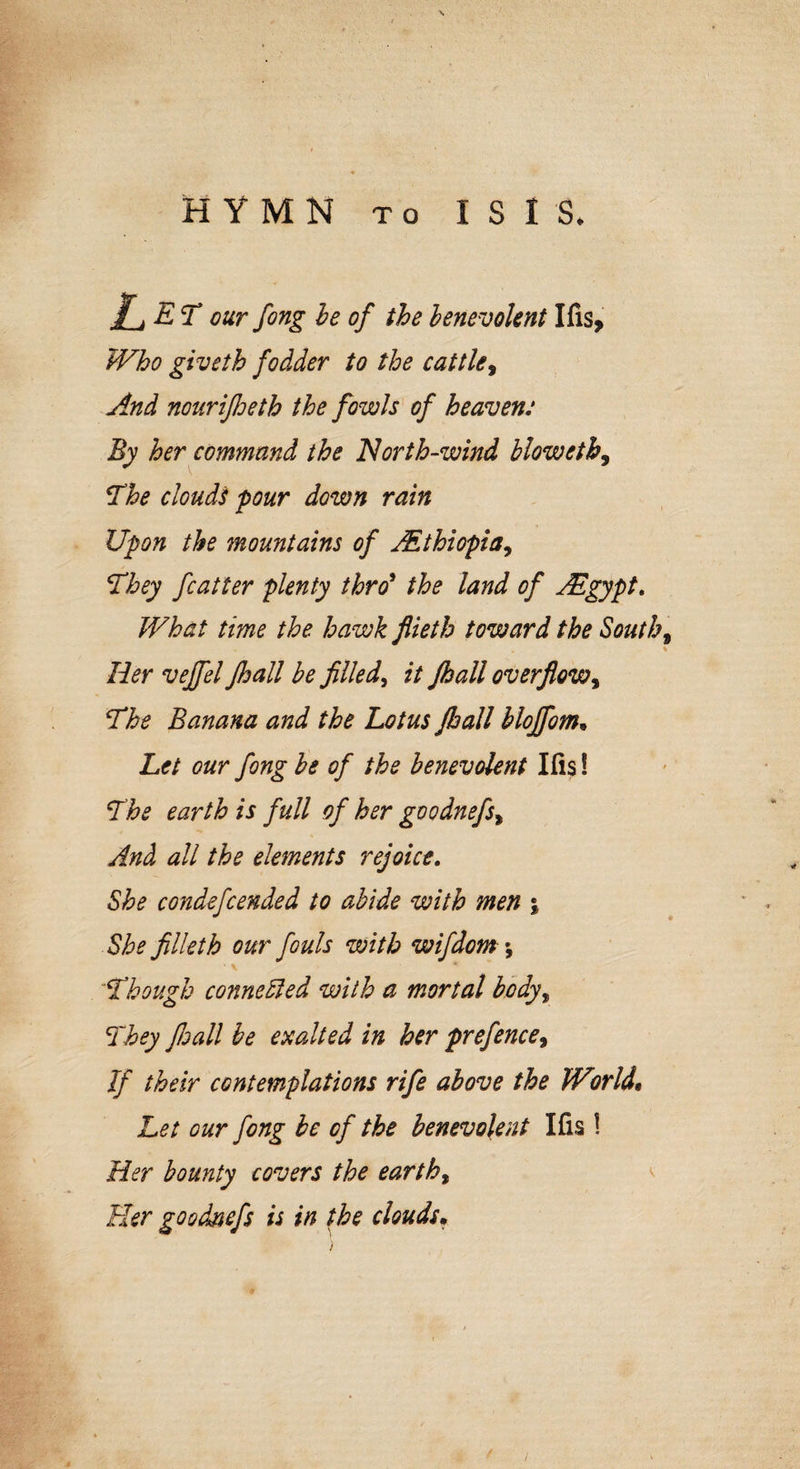 HYMN TO ISIS.
LET our ſong be of the benevolent Iſis,
Who giveth fodder to the cattle,
And nouriſheth the fowls of heaven:
By her command the North-wind bloweth,
The clouds pour down rain
Upon the mountains of Æthiopia,
They ſcatter plenty thro' the land of Ægypt.
What time the hawk flieth toward the South,
Her veſſel ſhall be filled, it ſhall overflow,
The Banana and the Lotus ſhall bloſſom.
Let our ſong be of the benevolent Iſis!
The earth is full of her goodneſs,
And all the elements rejoice.
She condeſcended to abide with men;
She filleth our ſouls with wiſdom;
Though connected with a mortal body,
They ſhall be exalted in her preſence,
If their contemplations riſe above the World.
Let our ſong be of the benevolent Iſis!
Her bounty covers the earth,
Her goodneſs is in the clouds.